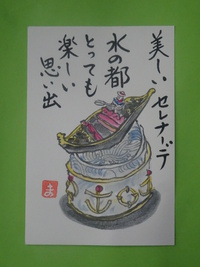 美しい セレナーデ
水の都
とっても
楽しい
思い出